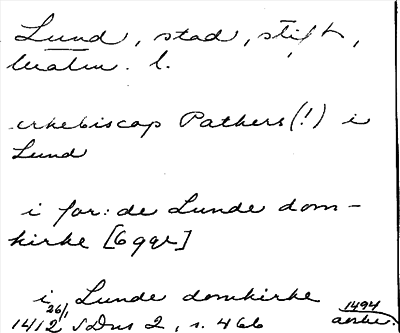 Lund, stad, stift,
Malm. l.
erkebiscop Pathers (!) i
Lund
i for: de Lunde dom-
kirke [6 ggr]
i Lunde domkirke
26/1 1412 SDns 2, s. 466
1494